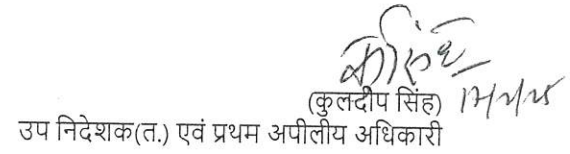 (कुलदीप सिंह)
उप निदेशक(त.) एवं प्रथम अपीलीय अधिकारी